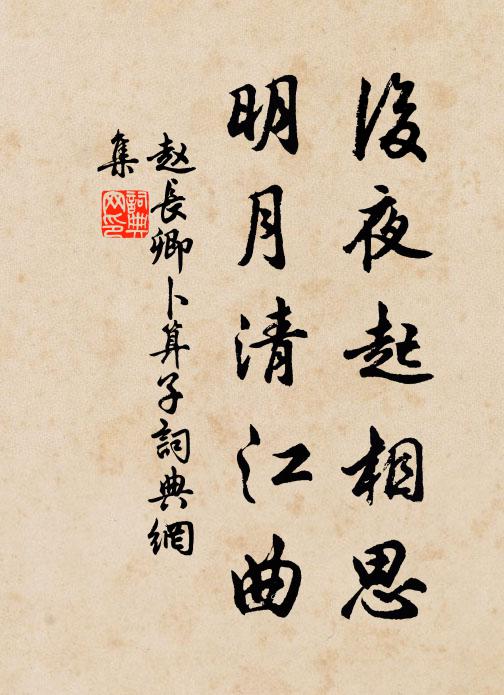 後夜起相思
明月清江曲
赵長卿卜算子詞典網
集
詞典
网印